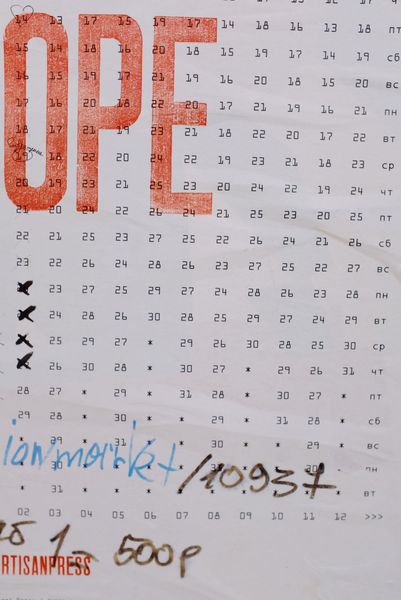 OPE
14 13 17 15 19 17 14 18 16 13 18 пт
15 14 18 16 20 18 15 19 17 14 19 сб
16 15 19 17 21 19 16 20 18 15 20 вс
17 16 20 18 22 20 17 21 19 16 21 пн
18 17 21 19 23 21 18 22 20 17 22 вт
19 18 22 20 24 22 19 23 21 18 23 ср
20 19 23 21 25 23 20 24 22 19 24 чт
21 20 24 22 26 24 21 25 23 20 25 пт
22 21 25 23 27 25 22 26 24 21 26 сб
23 22 26 24 28 26 23 27 25 22 27 вс
23 27 25 29 27 24 28 26 23 28 пн
24 28 26 30 28 25 29 27 24 29 вт
25 29 27 * 29 26 30 28 25 30 ср
26 30 28 * 30 27 * 29 26 31 чт
28 27 * 29 * 31 28 * 30 27 * пт
29 28 * 30 * * 29 * 31 28 * сб
* 29 * 31 * * 30 * * 29 * вс
30 пн
ianmarkt/10937
* 31 * * * * * * * * * вт
02 03 04 05 06 07 08 09 10 11 12 >>>
500р
RTISANPRESS